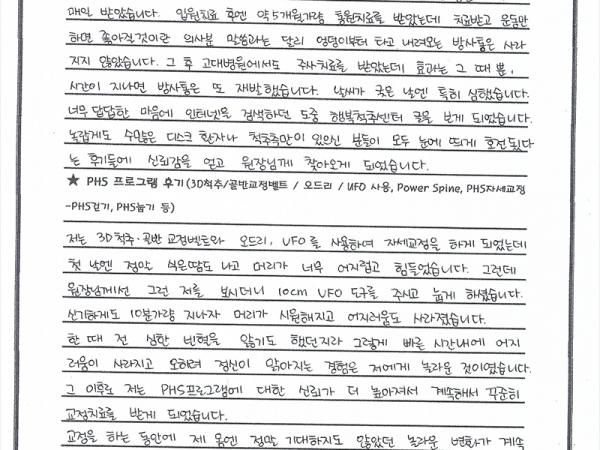 매일 받았습니다. 입원치료 후엔 약 5개월가량 통원치료를 받았는데 치료받고 운동만
하면 좋아질것이란 의사분 말씀과는 달리 엉덩이부터 타고 내려오는 방사통은 사라
지지 않았습니다. 그 후 고대병원에서도 주사치료를 받았는데 효과는 그 때 뿐,
시간이 지나면 방사통은 또 재발했습니다. 날씨가 궂은 날엔 특히 심했습니다.
너무 답답한 마음에 인터넷을 검색하던 도중 행복척추센터 글을 보게 되었습니다.
놀랍게도 수많은 디스크 환자나 척추측만이 있으신 분들이 모두 눈에 띄게 호전됬다
는 후기들에 신뢰감을 얻고 원장님께 찾아오게 되었습니다.
★ PHS 프로그램 후기(3D척추/골반교정벨트 / 오드리 / UFO 사용, Power Spine, PHS자세교정
-PHS걷기, PHS눕기 등)
저는 3D척추·골반 교정벨트와 오드리, UFO를 사용하여 자세교정을 하게 되었는데
첫 날엔 정말 식은땀도 나고 머리가 너무 어지럽고 힘들었습니다. 그런데
원장님께선 그런 저를 보시더니 10cm UFO 도구를 주시고 눕게 하셨습니다.
신기하게도 10분가량 지나자 머리가 시원해지고 어지러움도 사라졌습니다.
한 때 전 심한 빈혈을 앓기도 했던지라 그렇게 빠른 시간내에 어지
러움이 사라지고 오히려 정신이 맑아지는 경험은 저에게 놀라운 것이였습니다.
그 이후로 저는 PHS프로그램에 대한 신뢰가 더 높아져서 계속해서 꾸준히
교정치료를 받게 되었습니다.
교정을 하는 동안에 제 몸엔 정말 기대하지도 않았던 놀라운 변화가 계속